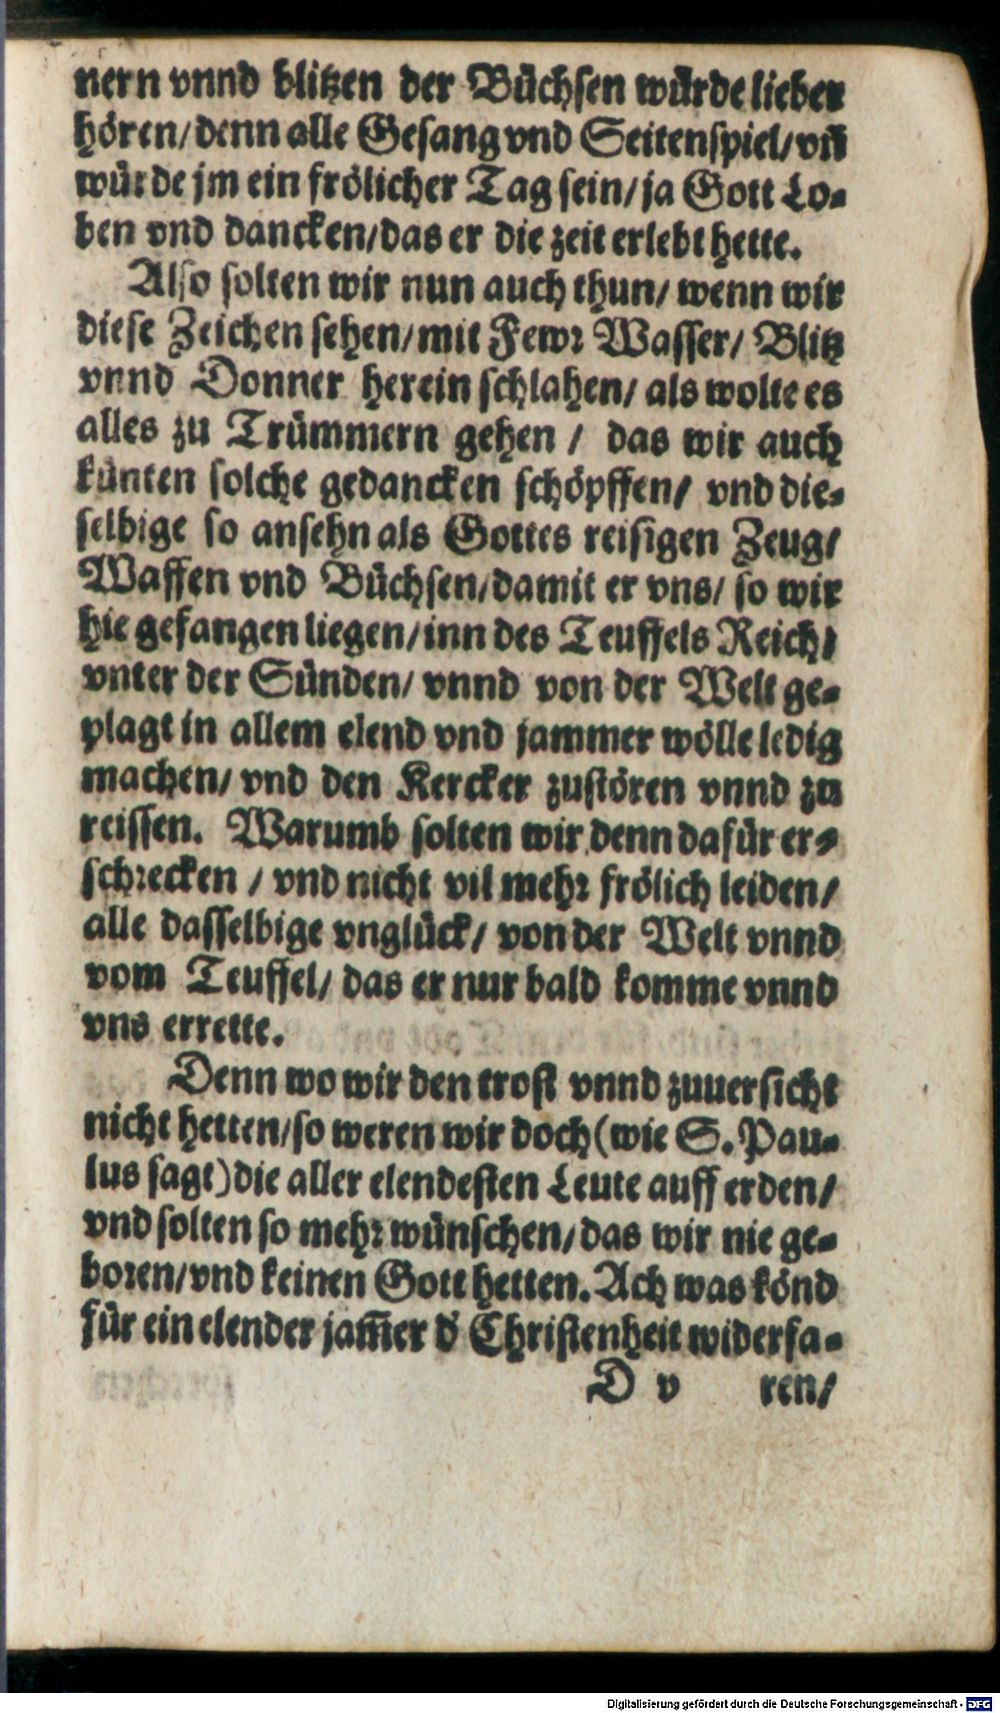 nern vnnd blitzen der Büchsen würde lieber
hören/denn alle Gesang vnd Seitenspiel/vñ
würde jm ein frölicher Tag sein/ja Gott Lo-
ben vnd dancken/das er die zeit erlebt hette.
Also solten wir nun auch thun/ wenn wir
diese Zeichen sehen/mit Fewr Wasser/ Blitz
vnnd Donner herein schlahen/ als wolte es
alles zu Trümmern gehen / das wir auch
künten solche gedancken schöpffen/ vnd die-
selbige so ansehn als Gottes reisigen Zeug/
Waffen vnd Büchsen/damit er vns/ so wir
hie gefangen liegen/inn des Teuffels Reich/
vnter der Sünden/ vnnd von der Welt ge-
plagt in allem elend vnd jammer wölle ledig
machen/ vnd den Kercker zustören vnnd zu
reissen. Warumb solten wir denn dafür er-
schrecken / vnd nicht vil mehr frölich leiden/
alle dasselbige vnglück/ von der Welt vnnd
vom Teuffel/ das er nur bald komme vnnd
vns errette.
Denn wo wir den trost vnnd zuuersicht
nicht hetten/so weren wir doch (wie S. Pau-
lus sagt) die aller elendesten Leute auff erden/
vnd solten so mehr wünschen/das wir nie ge-
boren/vnd keinen Gott hetten. Ach was könd
für ein elender jam̃er d' Christenheit widerfa-
D v ren/
Digitalisierung gefördert durch die Deutsche Forschungsgemeinschaft - DFG